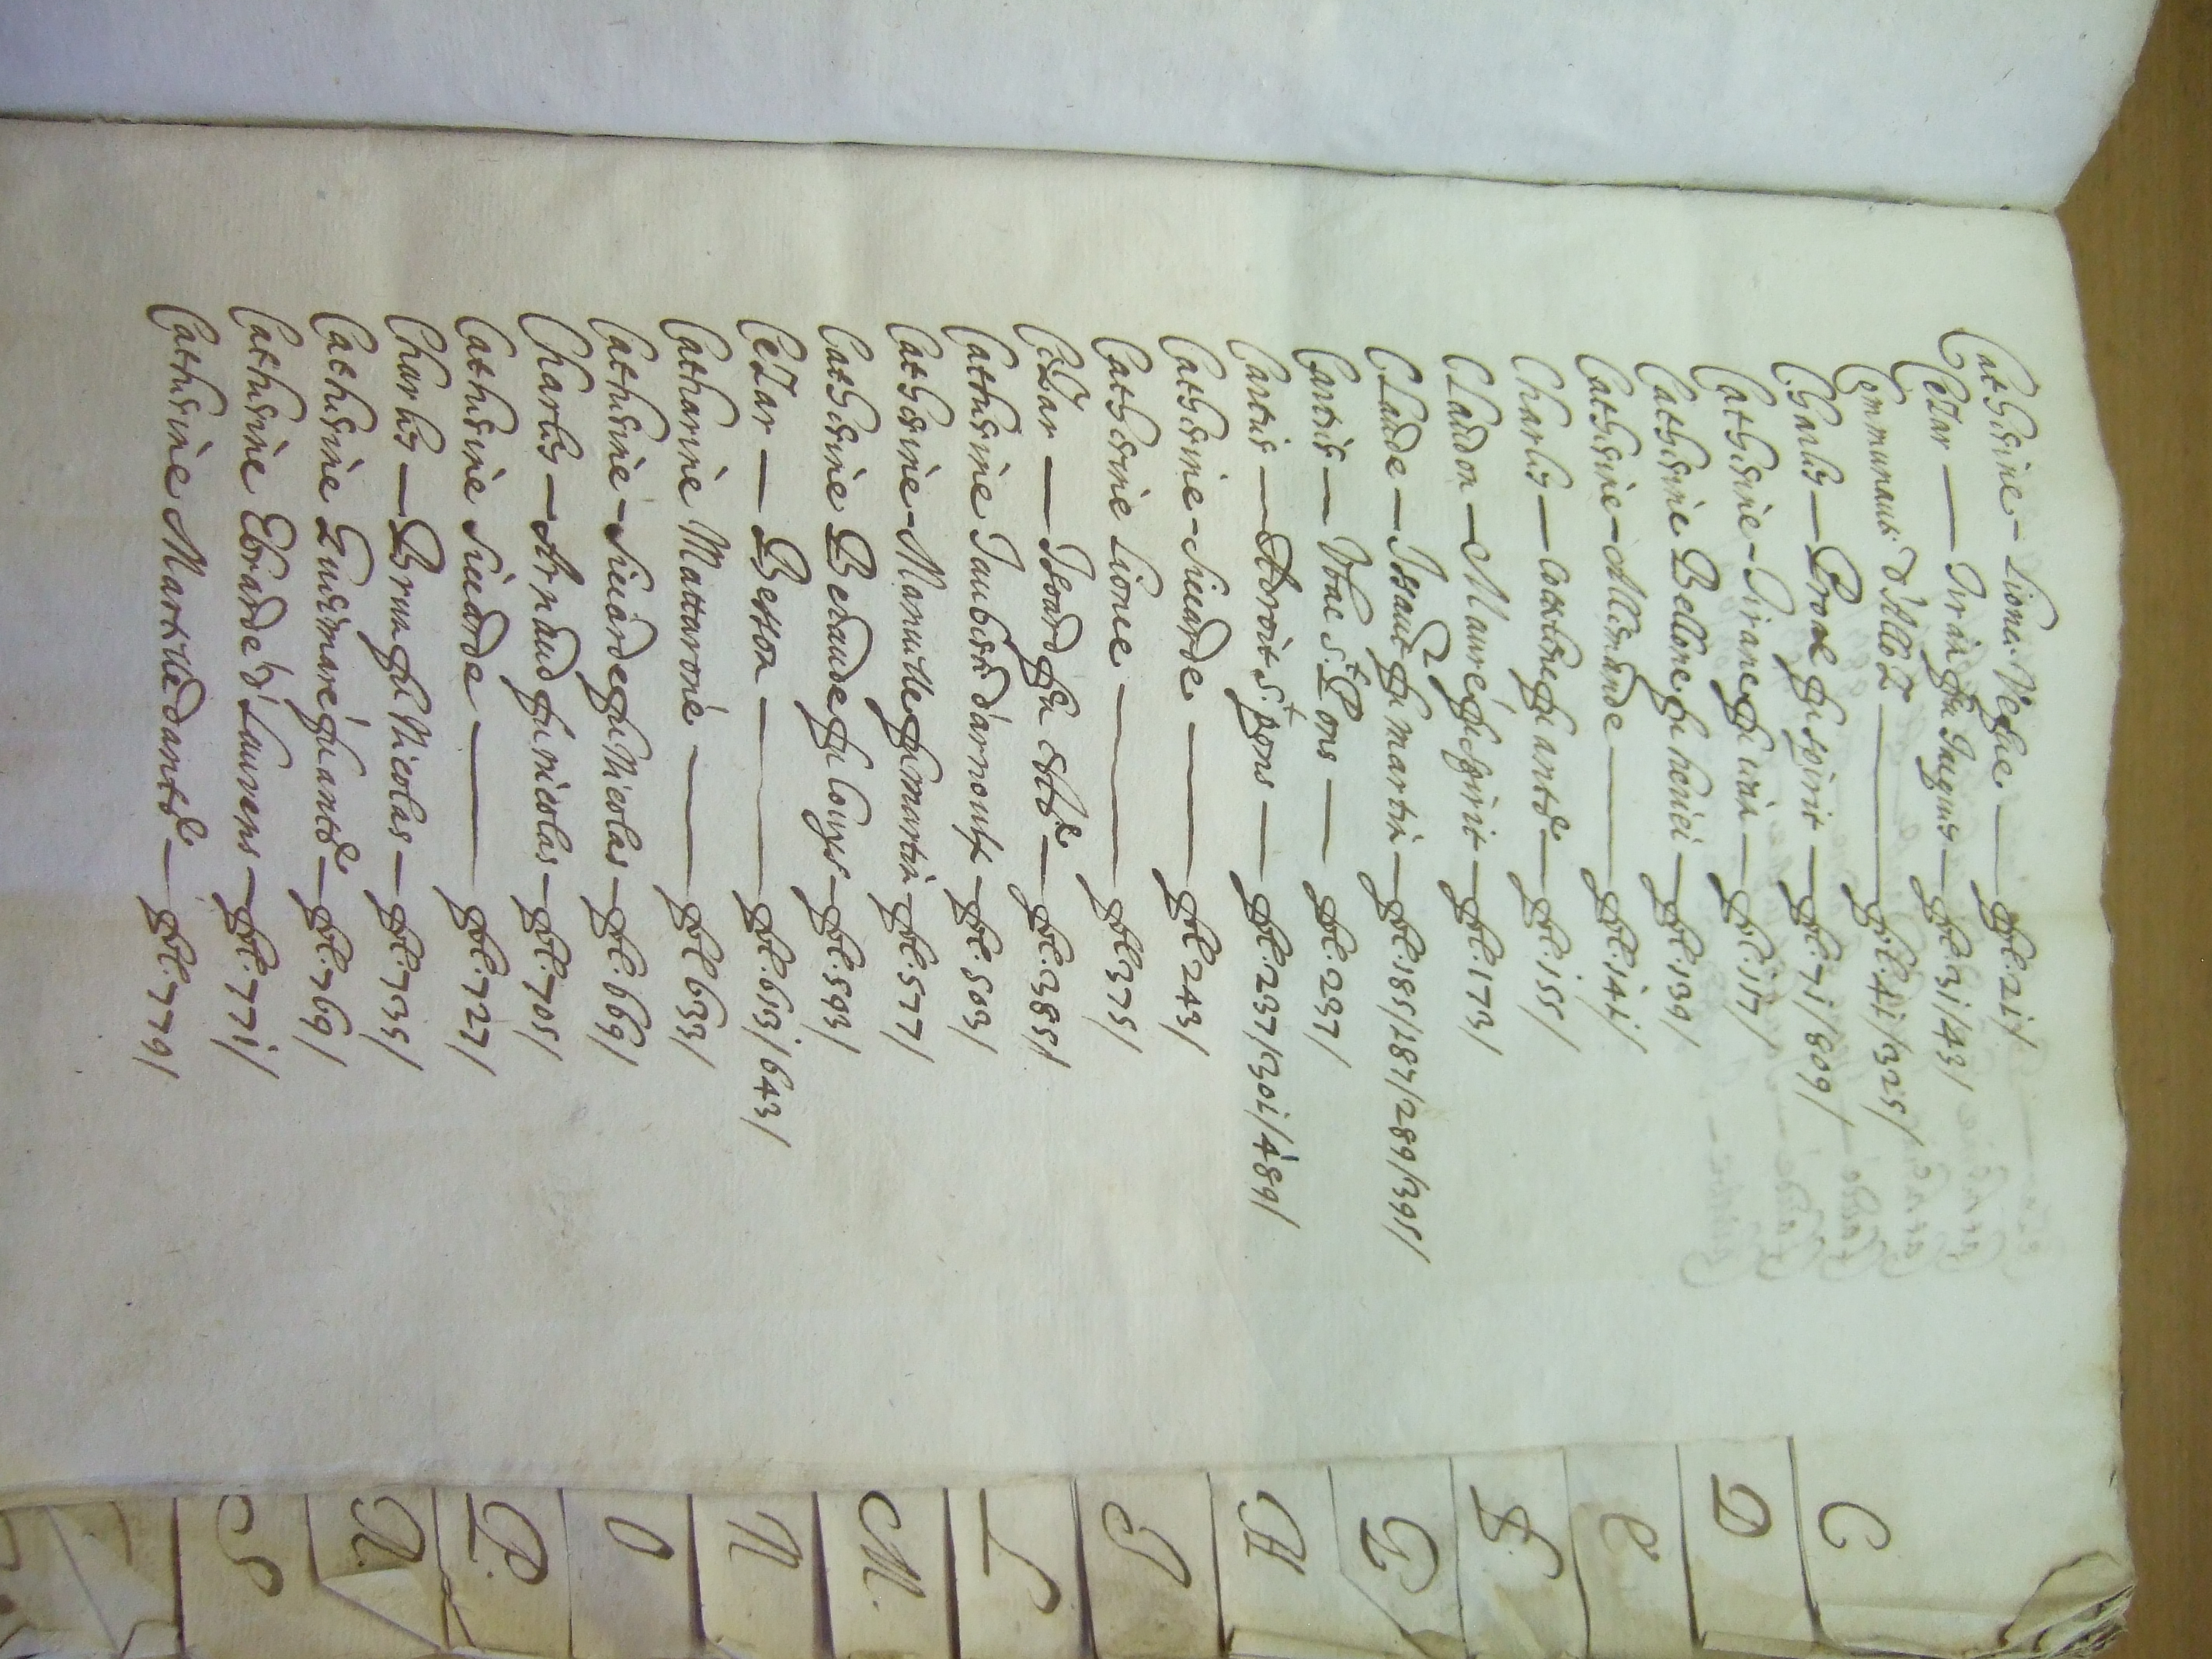 Catherine - Lione Vefue — fol: 21/
Cezar — Girin fu Jaques — fol: 31/43/
Commnauté d'Alloz — fol: 41/325/
Charles — Proal fu spirit — fol: 71/809/
Catherine - Girane fu — fol: 117/
Catherine Bellone fu — fol: 139/
Catherine - Allemande — fol: 141/
Charles — fu antoe — fol: 155/
Claudon — Maurė fu spirit — fol: 173/
Claude — Isautz fu martin — fol: 185/187/289/395/
Cartis — Vbac St Pons — fol: 297/
Cartis — Adroit St pons — fol: 297/301/489/
Catherine - Sicarde — fol: 243/
Catherine Lione — fol 375/
Cezar — Isoard fu — fol: 385/
Catherine Jauberte d'arnoulx — fol: 503/
Catherine - Manuelle fu martin - fol: 577/
Catherine Bedaude fu Louys - fol: 593/
Cezar — Besson — fol: 613/643/
Catharine Mattarone — fol 633/
Catherine - Sicarde fu Nicolas - fol: 669/
Charles — Arnaud fu nicolas - fol: 705/
Catherine Sicarde — fol: 727/
Charles — Brun fu Nicolas — fol: 735/
Catherine fu antoe — fol: 769/
Catherine Ebrarde d'Laurens - fol: 771/
Catherine Martelle d'antoe — fol: 779/
C
D
E
F
G
H
J
L
M
N
O
P
R
S